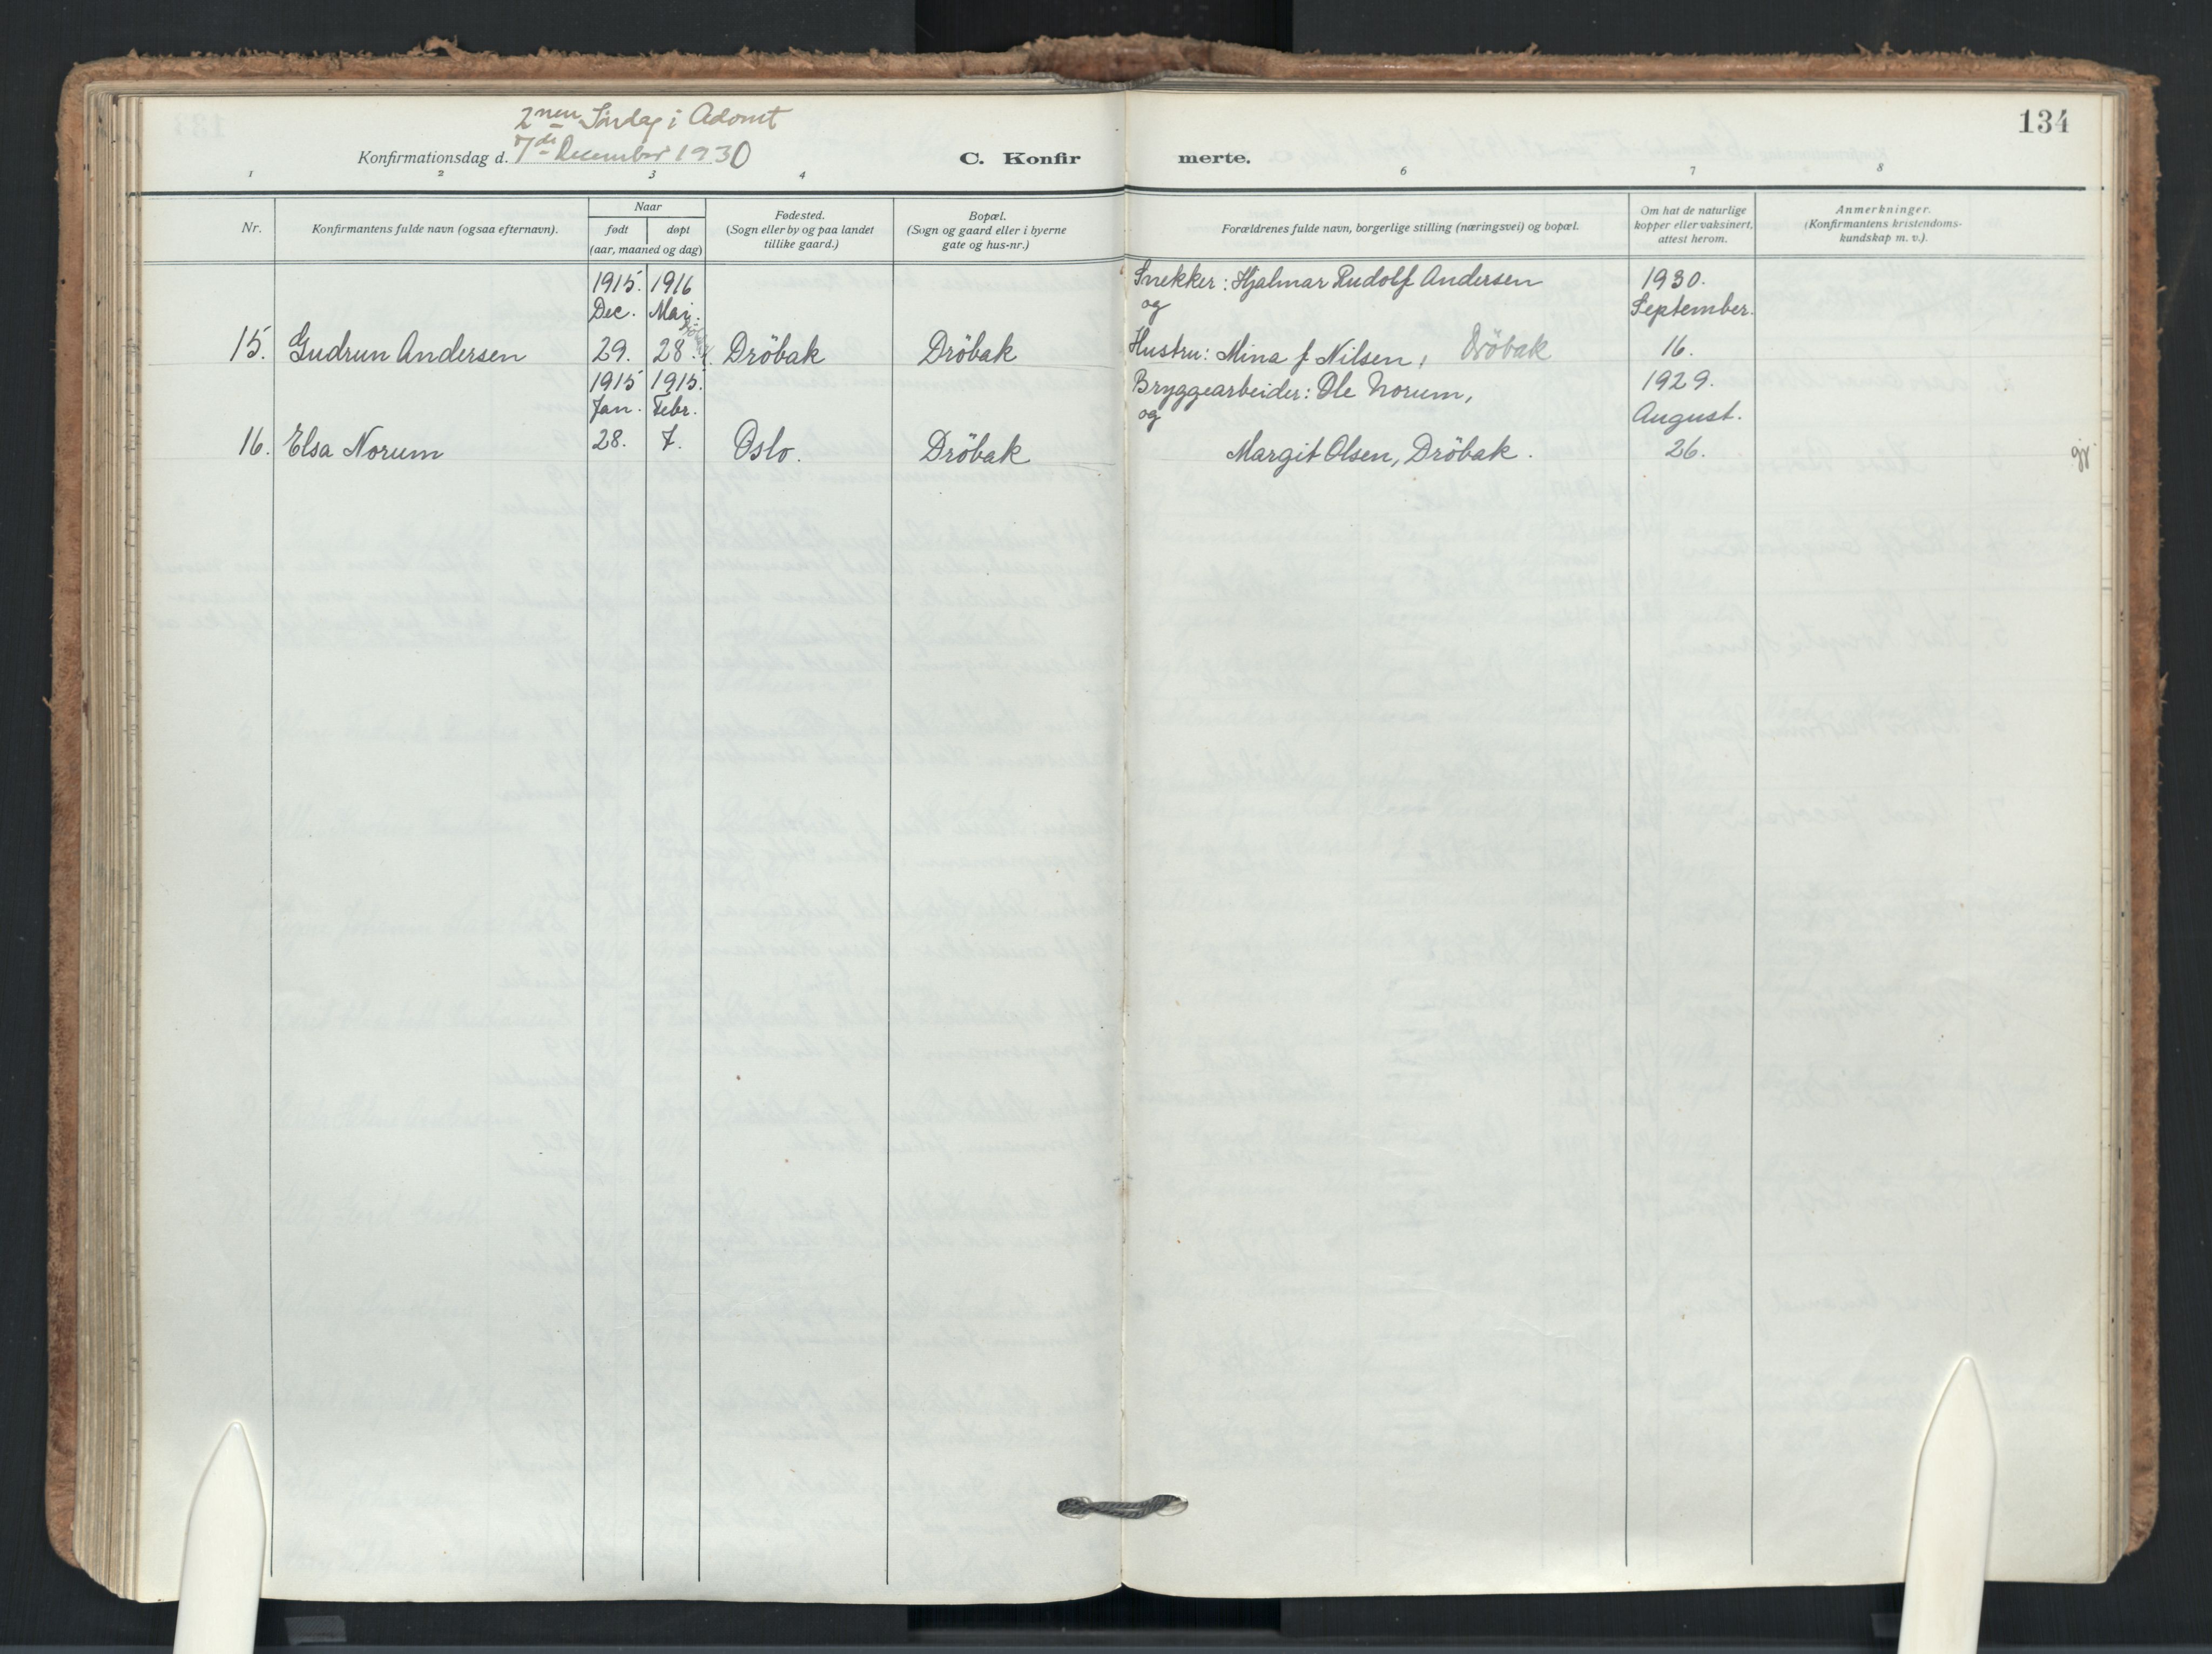 134
2nen Søndag i Advent
Konfirmationsdag d. 7de December 1930
C. Konfirmerte.
1 2 3 4 6 7 8
Nr.
Konfirmantens fulde navn (ogsaa efternavn).
Naar
født
døpt
(aar, maaned og dag)
Fødested.
(Sogn eller by og paa landet
tillike gaard.)
Bopæl.
(Sogn og gaard eller i byerne
gate og hus-nr.)
Forældrenes fulde navn, borgerlige stilling (næringsvei) og bopæl.
Om hat de naturlige
kopper eller vaksinert,
attest herom.
Anmerkninger.
(Konfirmantens kristendoms-
kundskap m. v.).
1915. 1916 Snekker: Hjalmar Rudolf Andersen 1930.
Dec. Mai. og September.
15. Gudrun Andersen 29. 28. Dröbak Dröbak Hustru: Mina f Nilsen, Dröbak 16.
1915 1915. Bryggearbeider: Ole Norum, 1929.
Jan. Febr. og August.
16. Elsa Norum 28. 7. Oslo. Dröbak Margit Olsen, Dröbak. 26.